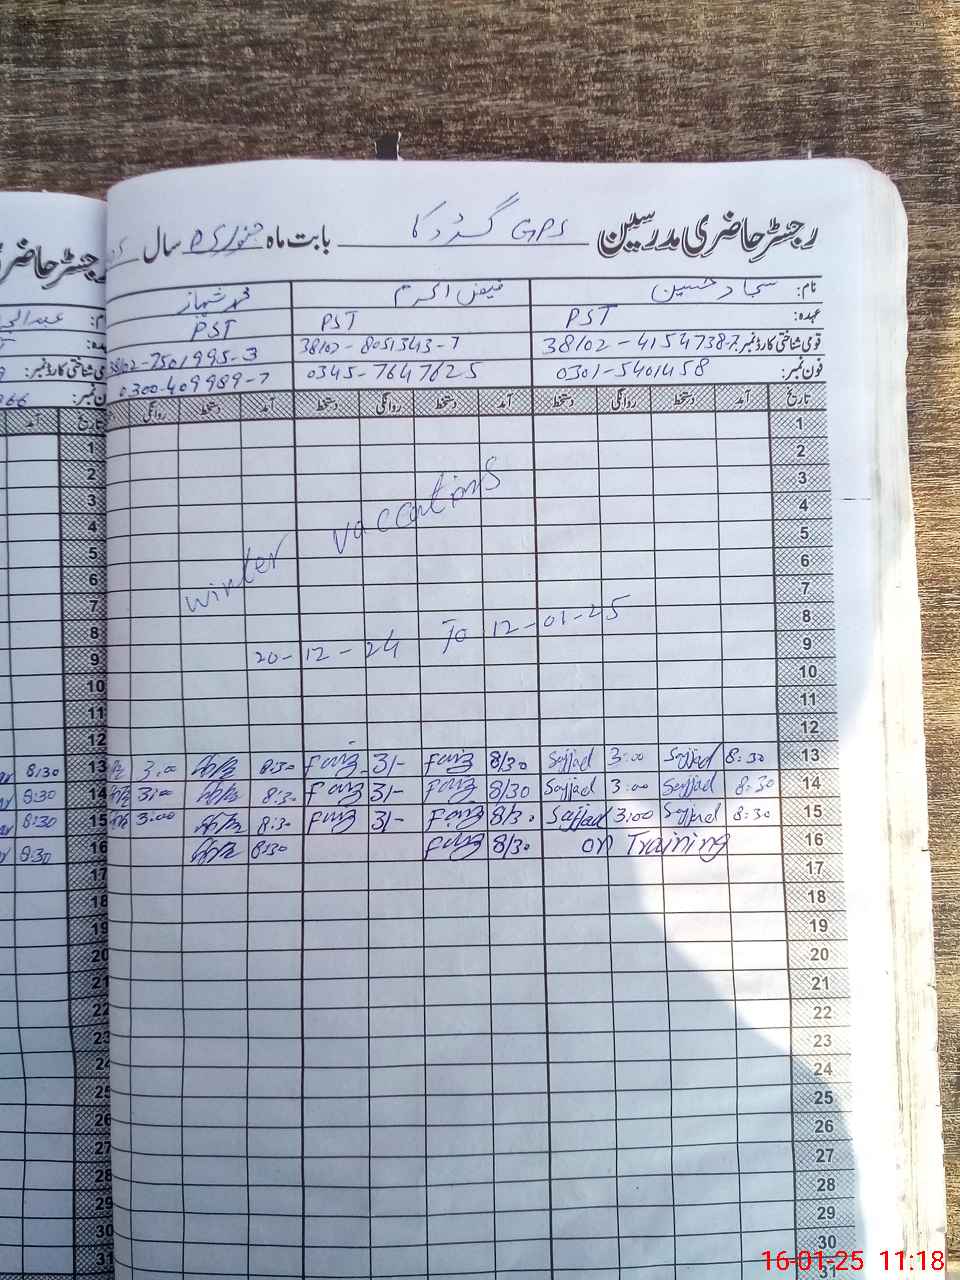 رجسٹر حاضری مدرسین GPS بابت ماہ جنوری سال
نام: سجاد حسین فیض اکرم
عہدہ: PST PST PST
قومی شناختی کارڈ نمبر: 38102-4154738-7 38102-8051343-7 38102-7501995-3
فون نمبر: 0301-5401458 0345-7647625 0300-409989-7
تاریخ آمد دستخط روانگی دستخط آمد دستخط روانگی دستخط آمد دستخط روانگی
1
2
3
4
5
6
7
8
9
10
11
12
winter vaccations
20-12-24 To 12-01-25
13 8:30 Sajjad 3:00 Sajjad 8/30 Faiz 3/- Faiz 8:30 3:00
14 8:30 Sajjad 3:00 Sajjad 8/30 Faiz 3/- Faiz 8:30 3:00
15 8:30 Sajjad 3:00 Sajjad 8/30 Faiz 3/- Faiz 8:30 3:00
16 on Training 8/30 Faiz 8:30
17
18
19
20
21
22
23
24
25
26
27
28
29
30
31
رجسٹر حاضری
تاریخ آمد
1
2
3
4
5
6
7
8
9
10
11
12
13 8:30
14 8:30
15 8:30
16 8:30
17
18
19
20
21
22
23
24
25
26
27
28
29
30
31
16-01-25 11:18